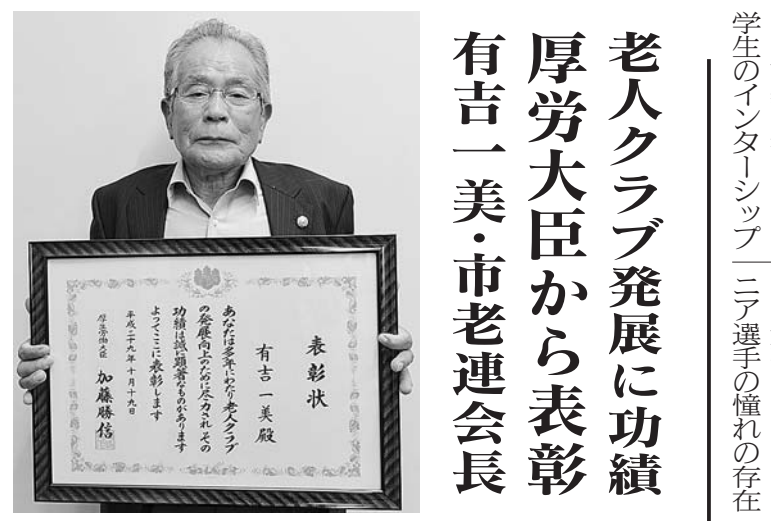 学生のインターシップ
ニア選手の憧れの存在
老人クラブ発展に功績
厚労大臣から表彰
有吉一美・市老連会長
表彰状
有吉一美殿
あなたは多年にわたり老人クラブ
の発展向上のために尽力されその
功績は誠に顕著なものがあります
よってここに表彰します
平成二十九年十月十九日
厚生労働大臣 加藤勝信